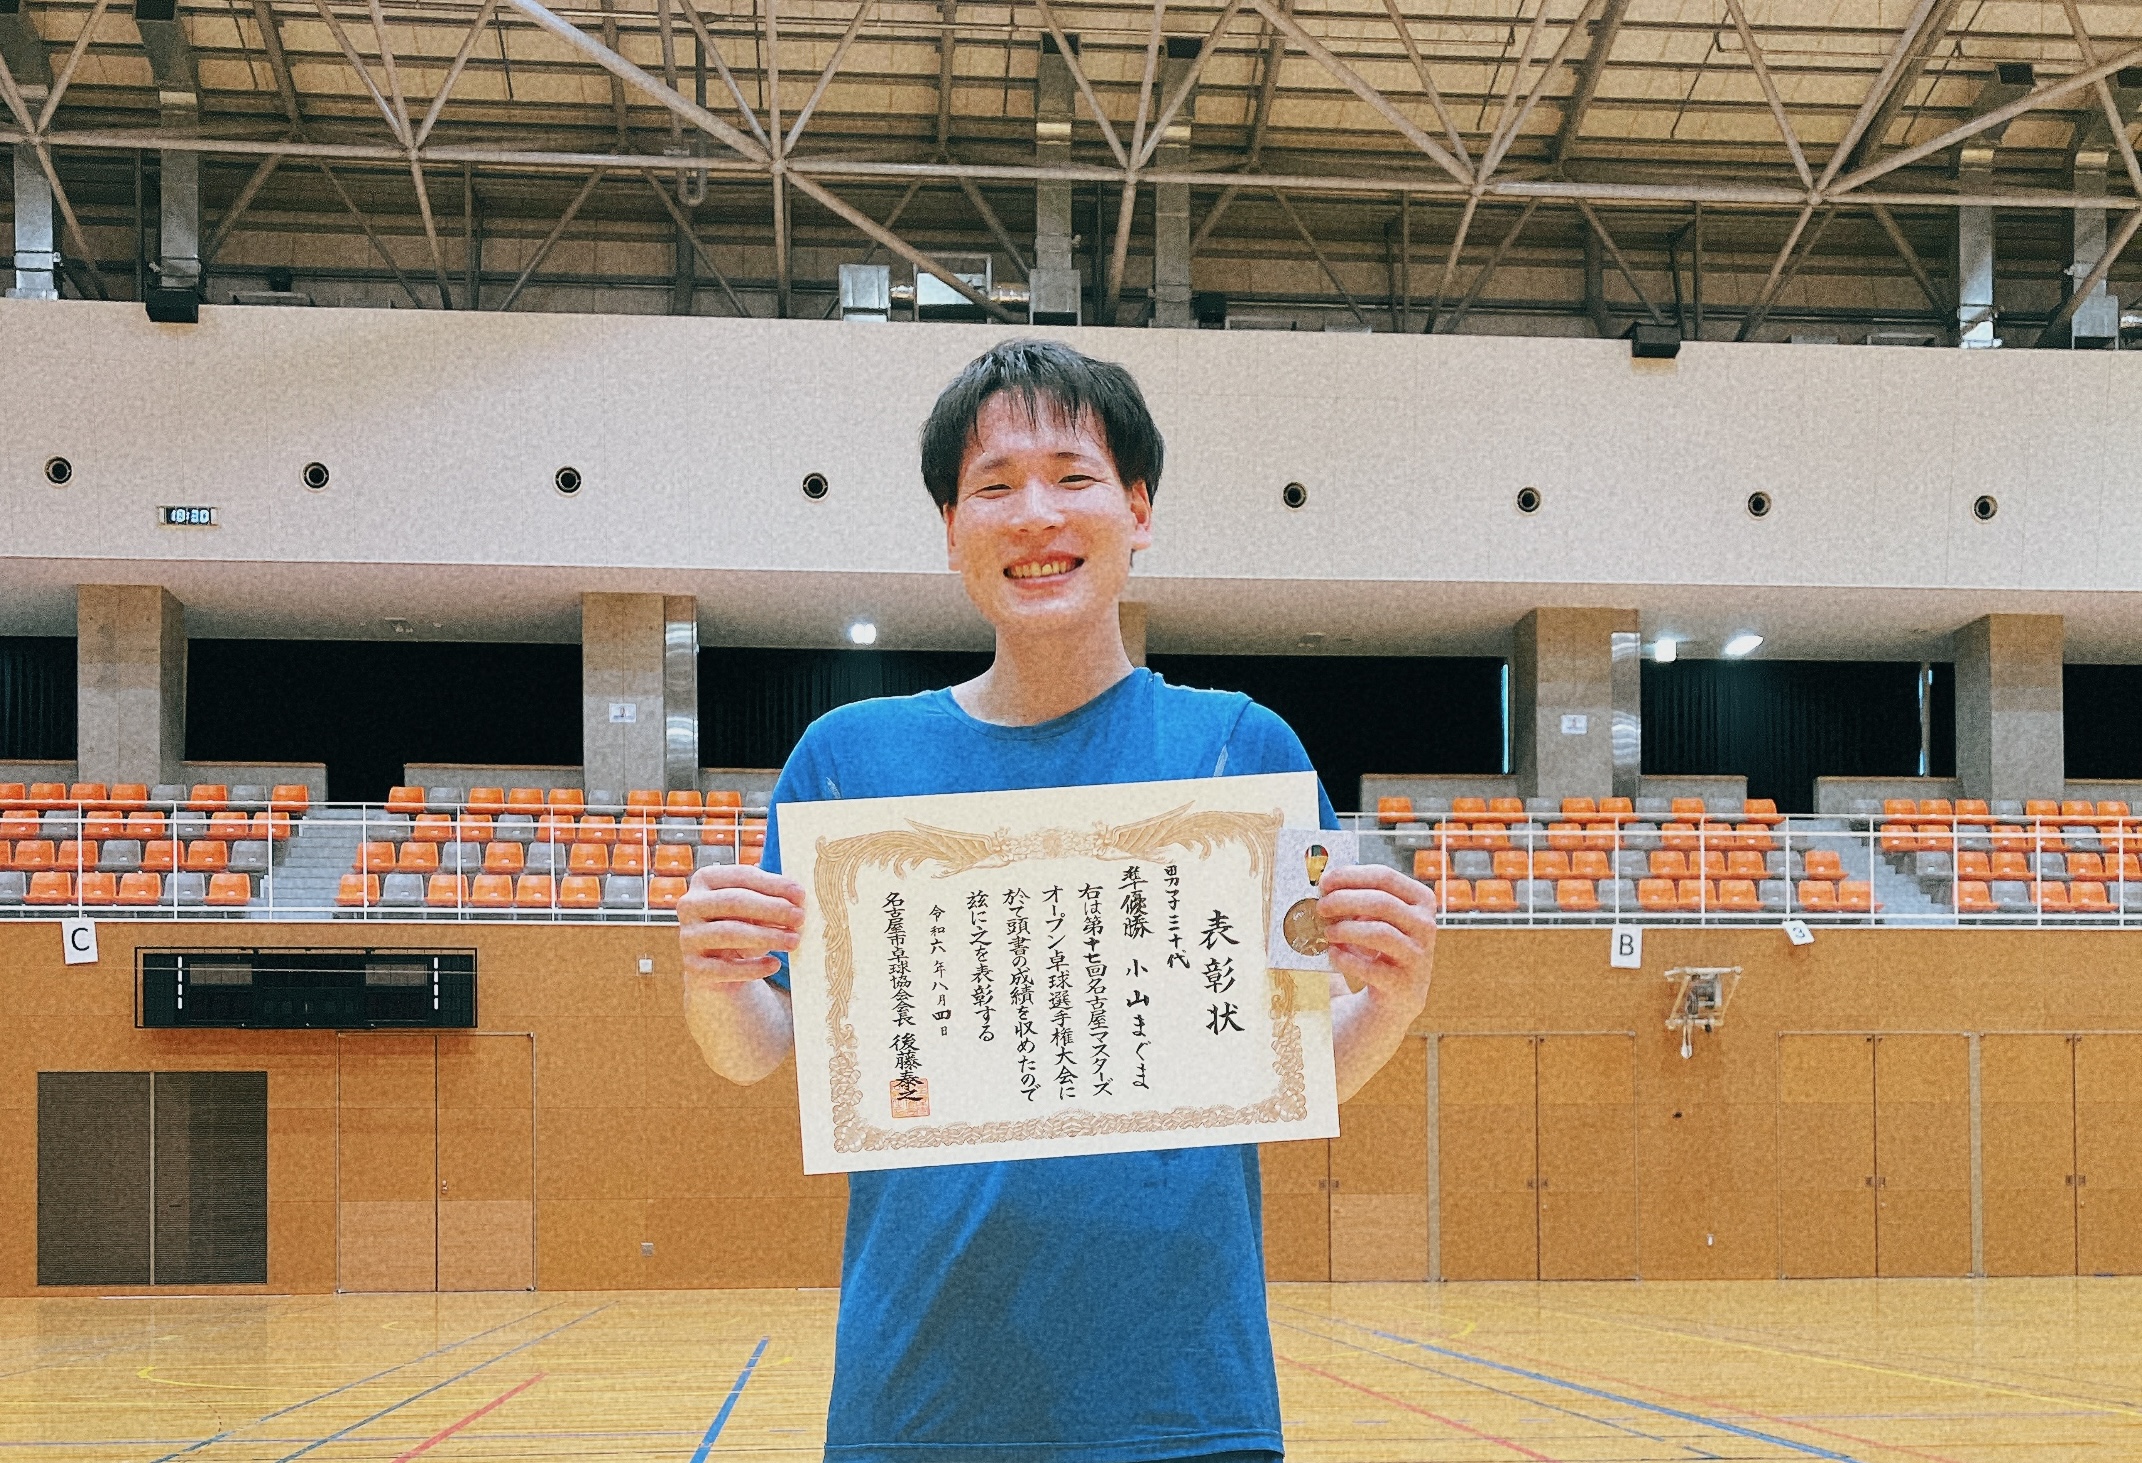 表彰状
男子三十代
準優勝 小山まぐま
右は第十七回名古屋マスターズ
オープン卓球選手権大会に
於て頭書の成績を収めたので
茲に之を表彰する
令和六年八月四日
名古屋市卓球協会会長 後藤泰之
C
B
3